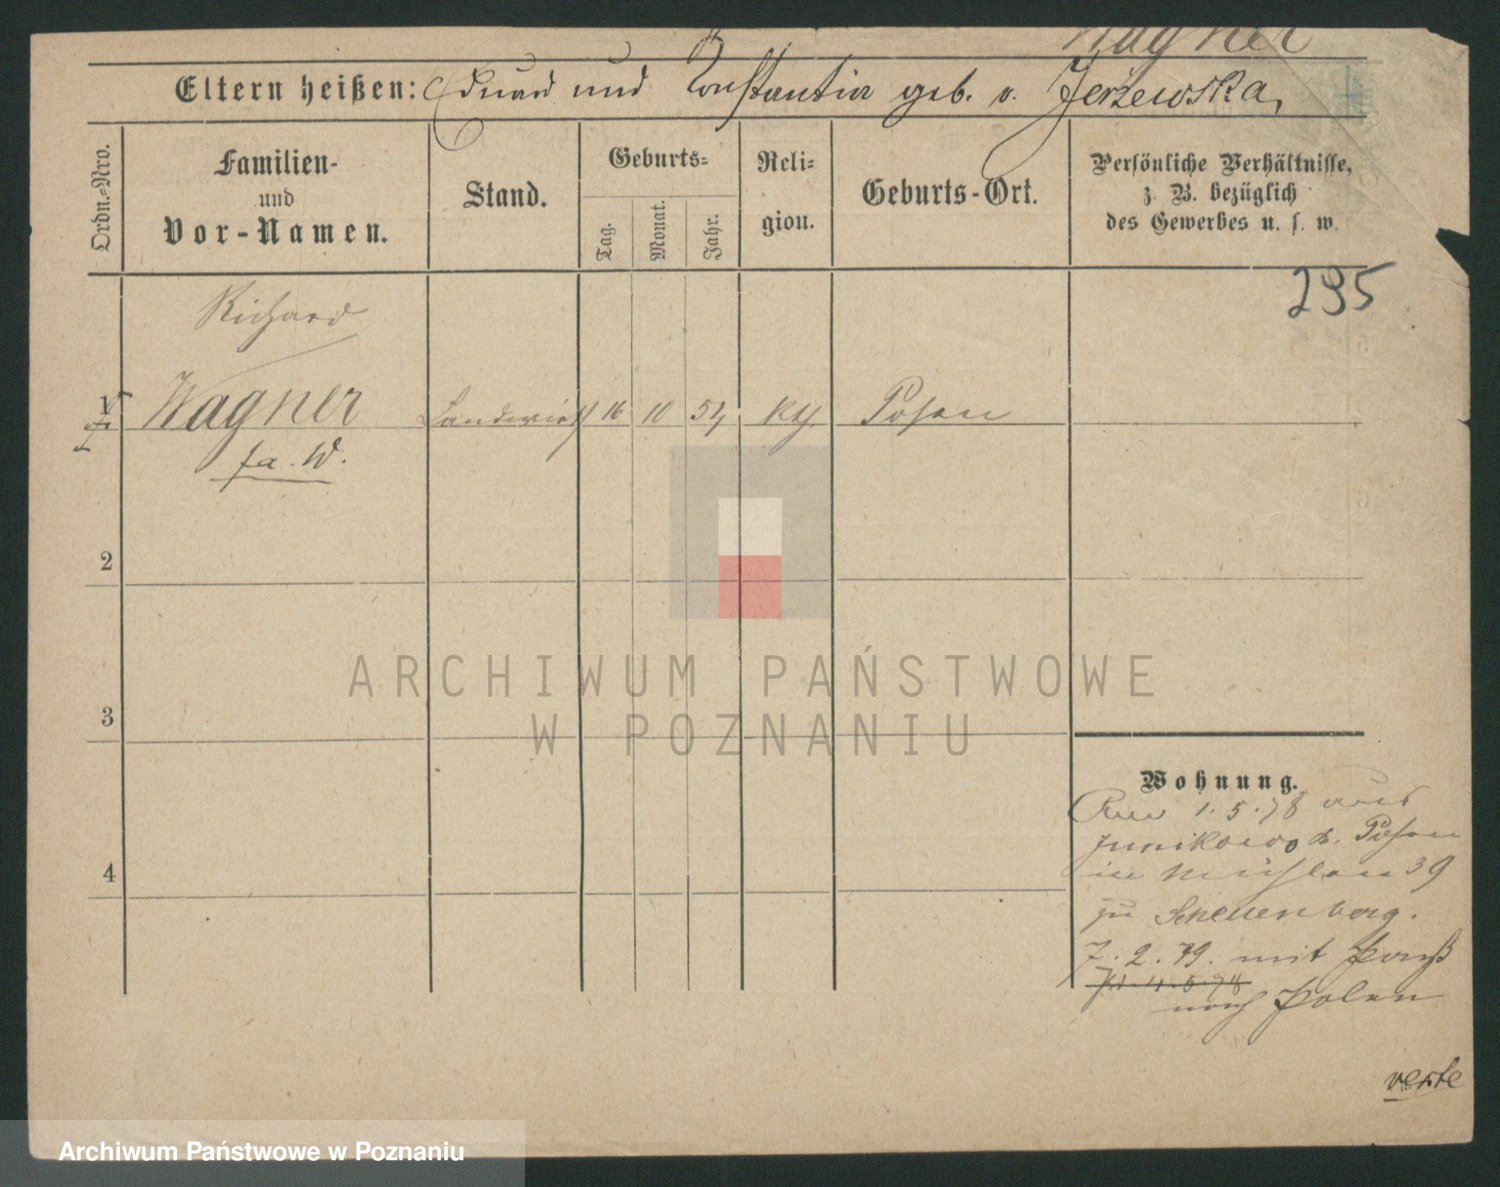 Wagner
Eltern heißen: Eduard und Konstantia geb. v. Jerzewska,
Ordn.=Nro.
Familien-
und
Vor-Namen.
Stand.
Geburts=
Tag.
Monat.
Jahr.
Reli=
gion.
Geburts-Ort.
Persönliche Verhältnisse,
z. B. bezüglich
des Gewerbes u. s. w.
295
Richard
1 Wagner Landwirth 16 10 54 kth. Posen
fa. W.
2
3
4
Wohnung.
1.5.78 aus
Junikowo b. Posen
in Mühlen 39
zu Scheuenberg.
7.2.79. mit Paß
4.5.78
nach Polen
verte
ARCHIWUM PAŃSTWOWE
W POZNANIU
Archiwum Państwowe w Poznaniu